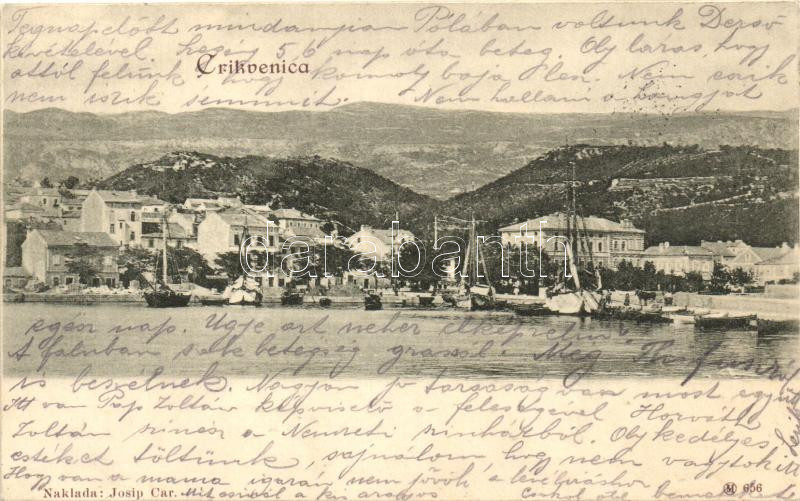 Tegnap előtt mindannyian Pólában voltunk Dersö
kivételével. Szegény 5 6 nap óta beteg. Oly lázas, hogy
attól felünk, hogy komoly baja lesz. Nem eszik
nem iszik semmit. Nem hallani a hangját
Crikvenica
egész nap. Ugye azt nehéz elképzelni.
A faluban sok betegség grassál. Még
is beszélnek. Nagyon jó társaság van most együtt
Itt van Pap Zoltán képviselő a feleségével Horváth
Zoltán színész a Nemzeti színházból. Oly kedélyes
estéket töltünk, sajnálom hogy nem vagytok itt
Hogy van a mama igazán nem jövök a levélíráshoz
Mit csinál a kis aranyos
Naklada: Josip Car.
M 656
darabanth